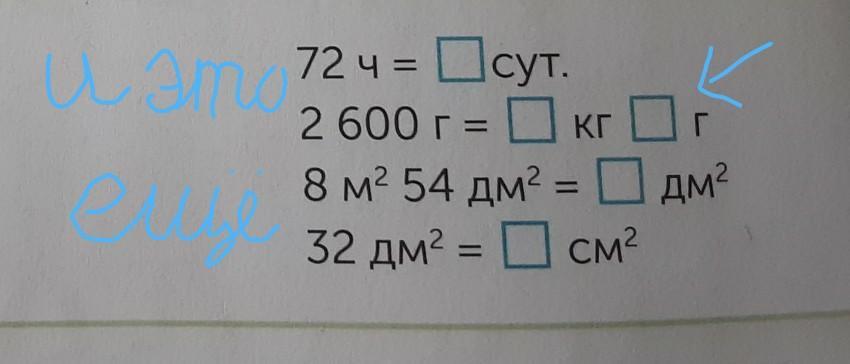 и это
72 ч = □ сут.
2 600 г = □ кг □ г
ещё
8 м² 54 дм² = □ дм²
32 дм² = □ см²